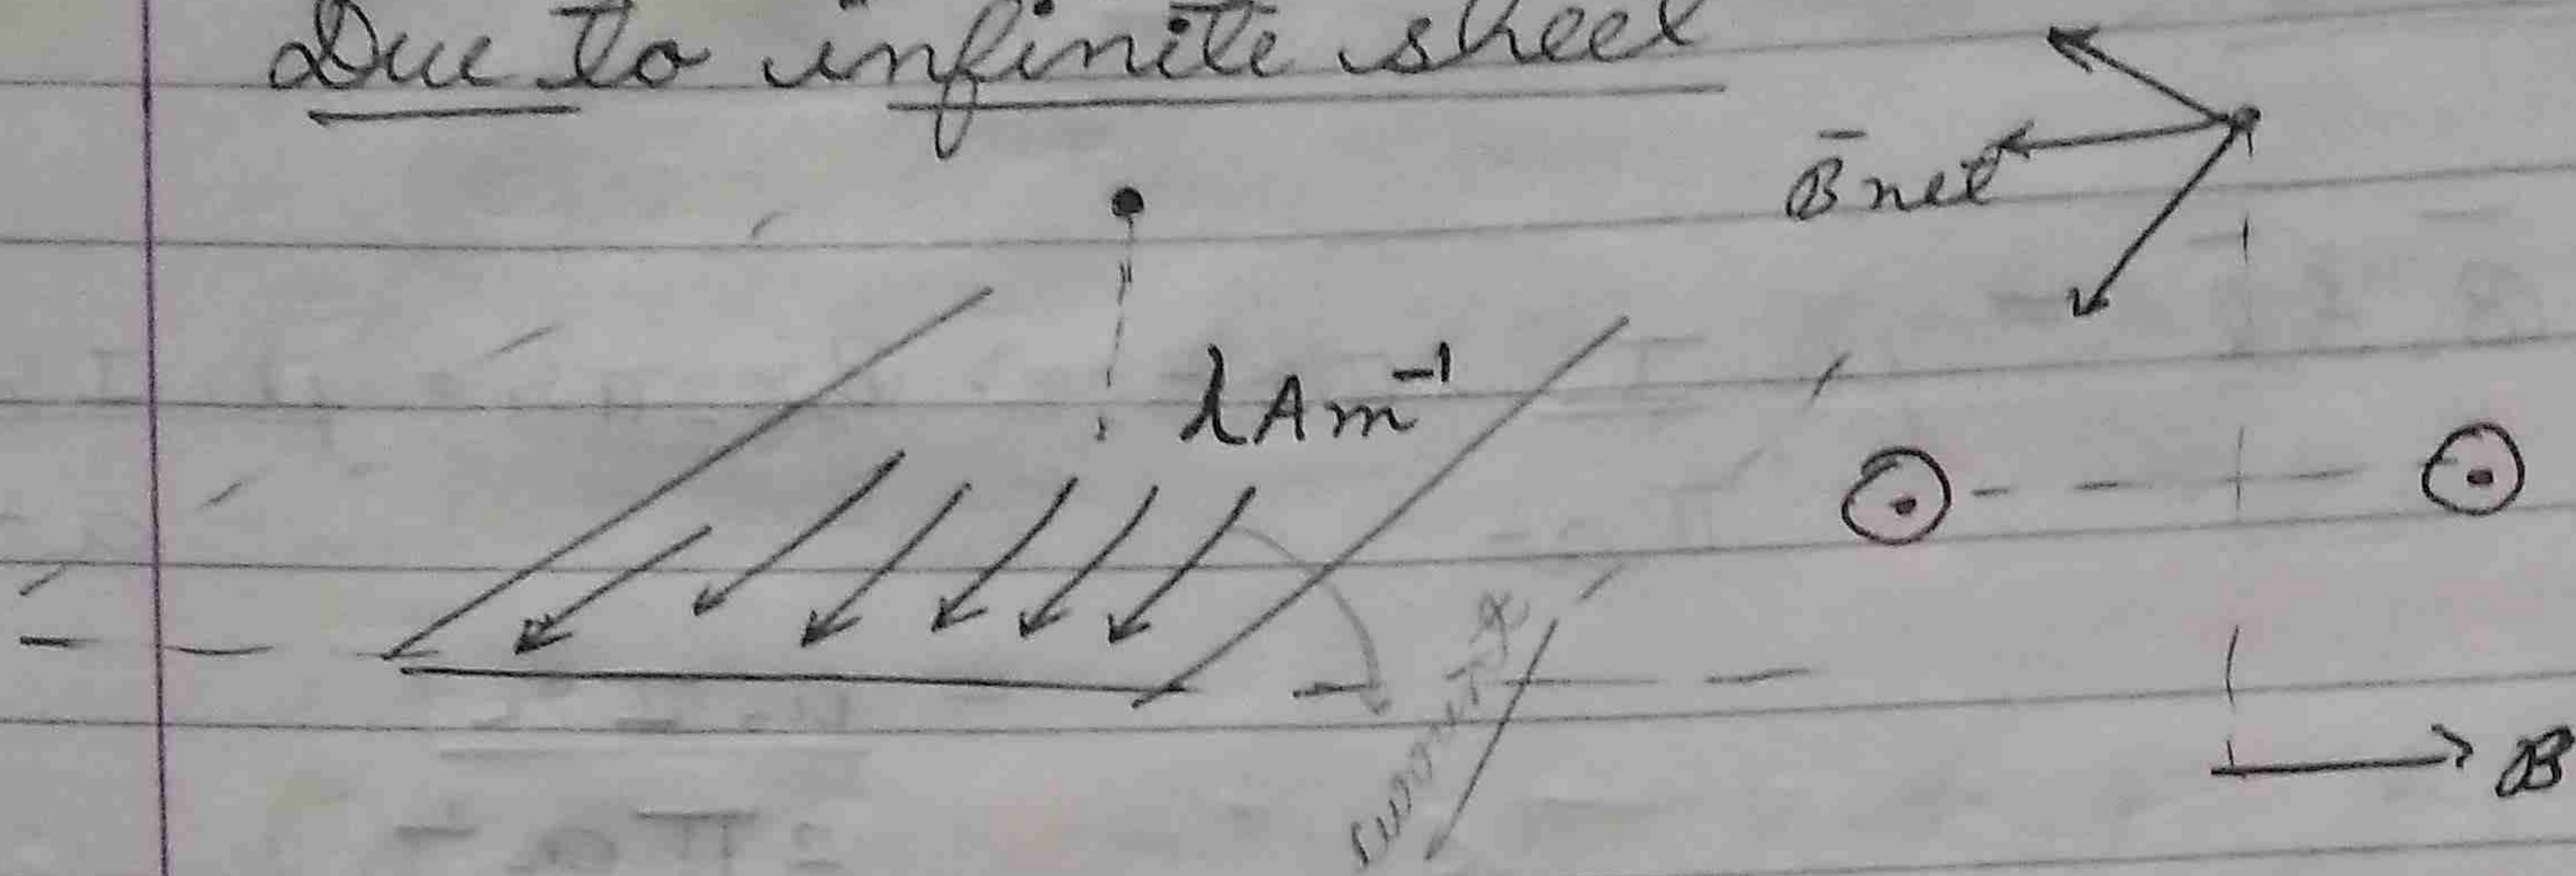 Due to infinite sheet
B̄ net
λ A m⁻¹
current
B